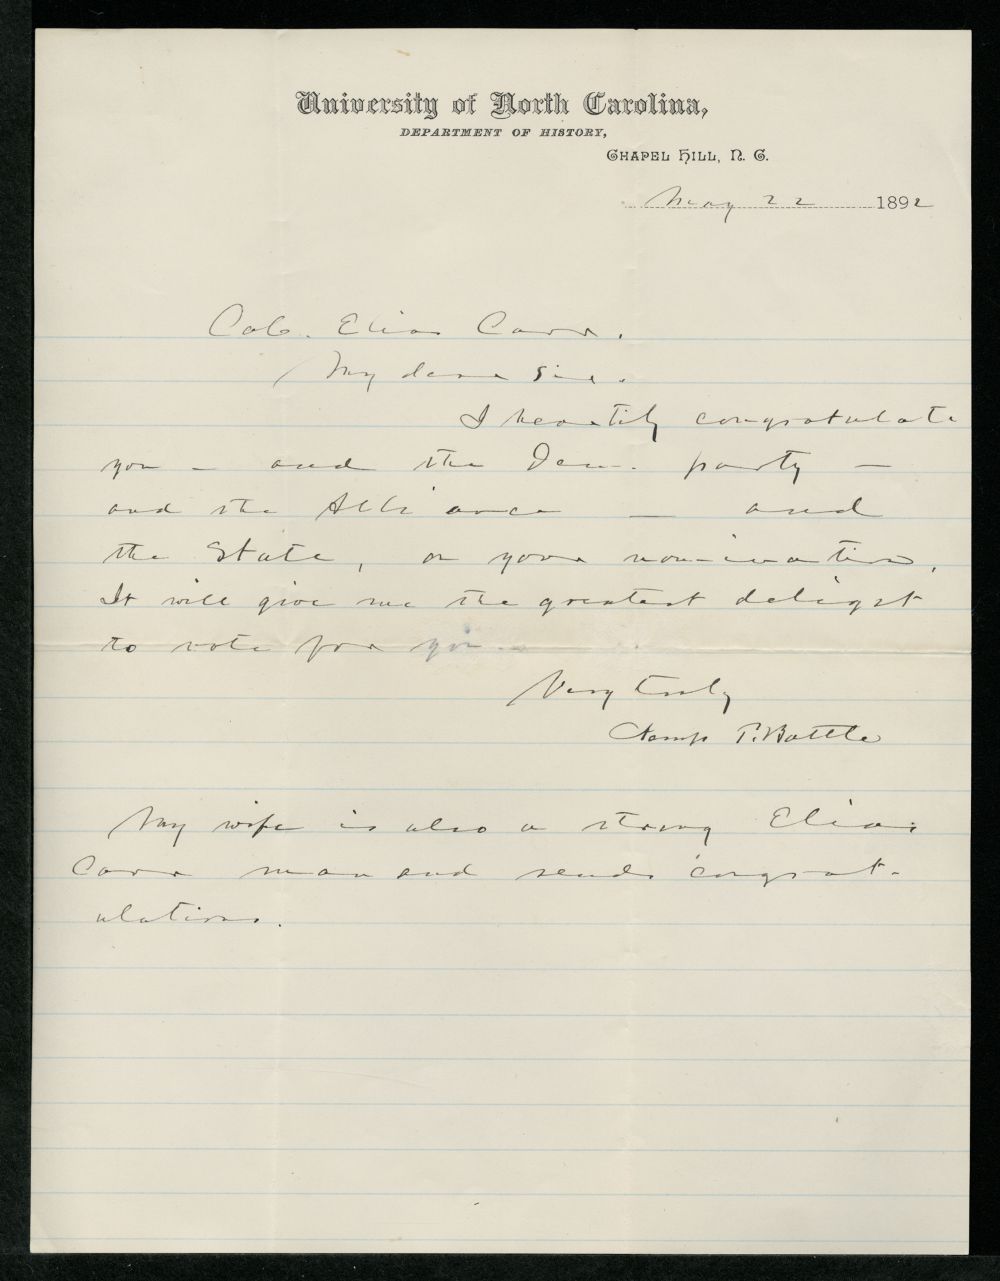 University of North Carolina,
DEPARTMENT OF HISTORY,
CHAPEL HILL, N. C.
May 22 1892
Col. Elias Carr.
My dear Sir.
I heartily congratulate
you – and the Dem. party –
and the Alliance – and
the State, on your nomination.
It will give me the greatest delight
to vote for you.
Very truly
Kemp P. Battle
My wife is also a strong Elias
Carr man and sends congrat-
ulations.